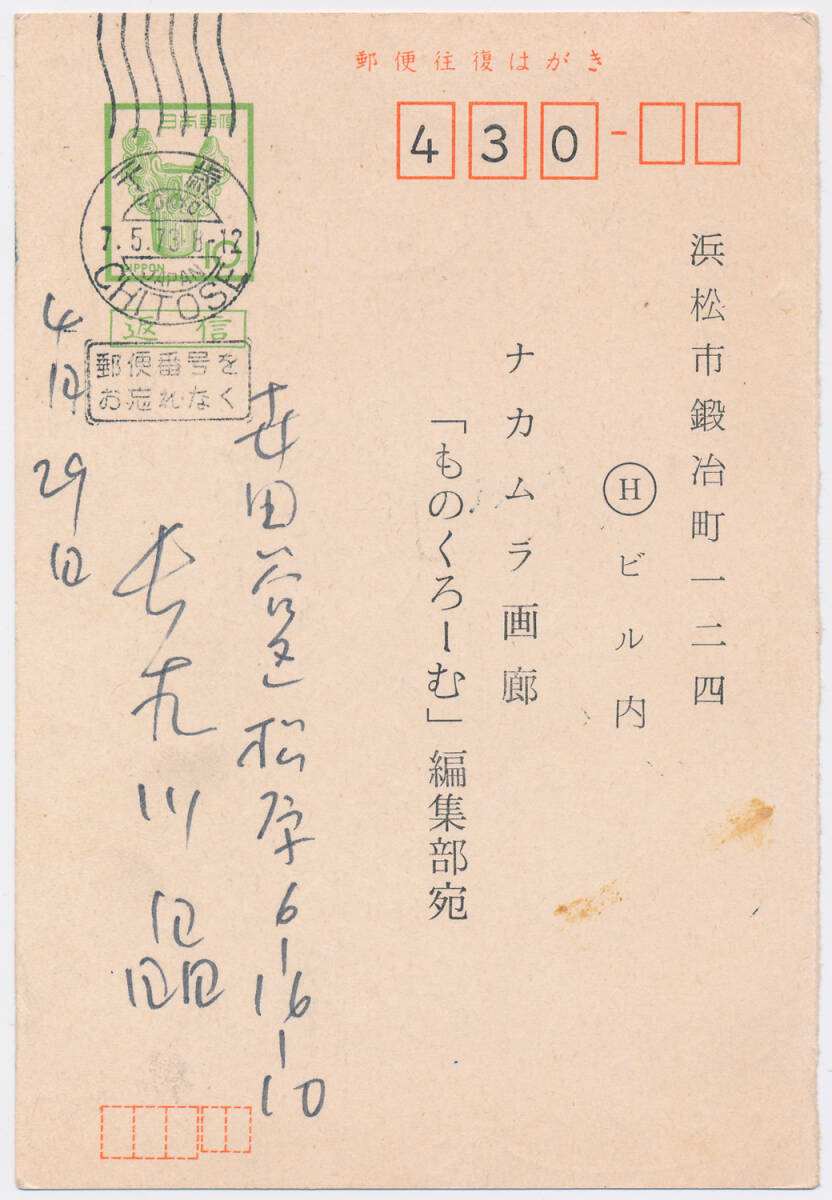 郵便往復はがき
日本郵便
10
NIPPON
千歳
TOKYO
7.5.73 8-12
JAPAN
CHITOSE
返信
郵便番号を
お忘れなく
430-
浜松市鍛冶町一二四
Ⓗビル内
ナカムラ画廊
「ものくろーむ」編集部宛
世田谷区松原6-16-10
川 晶
4月29日